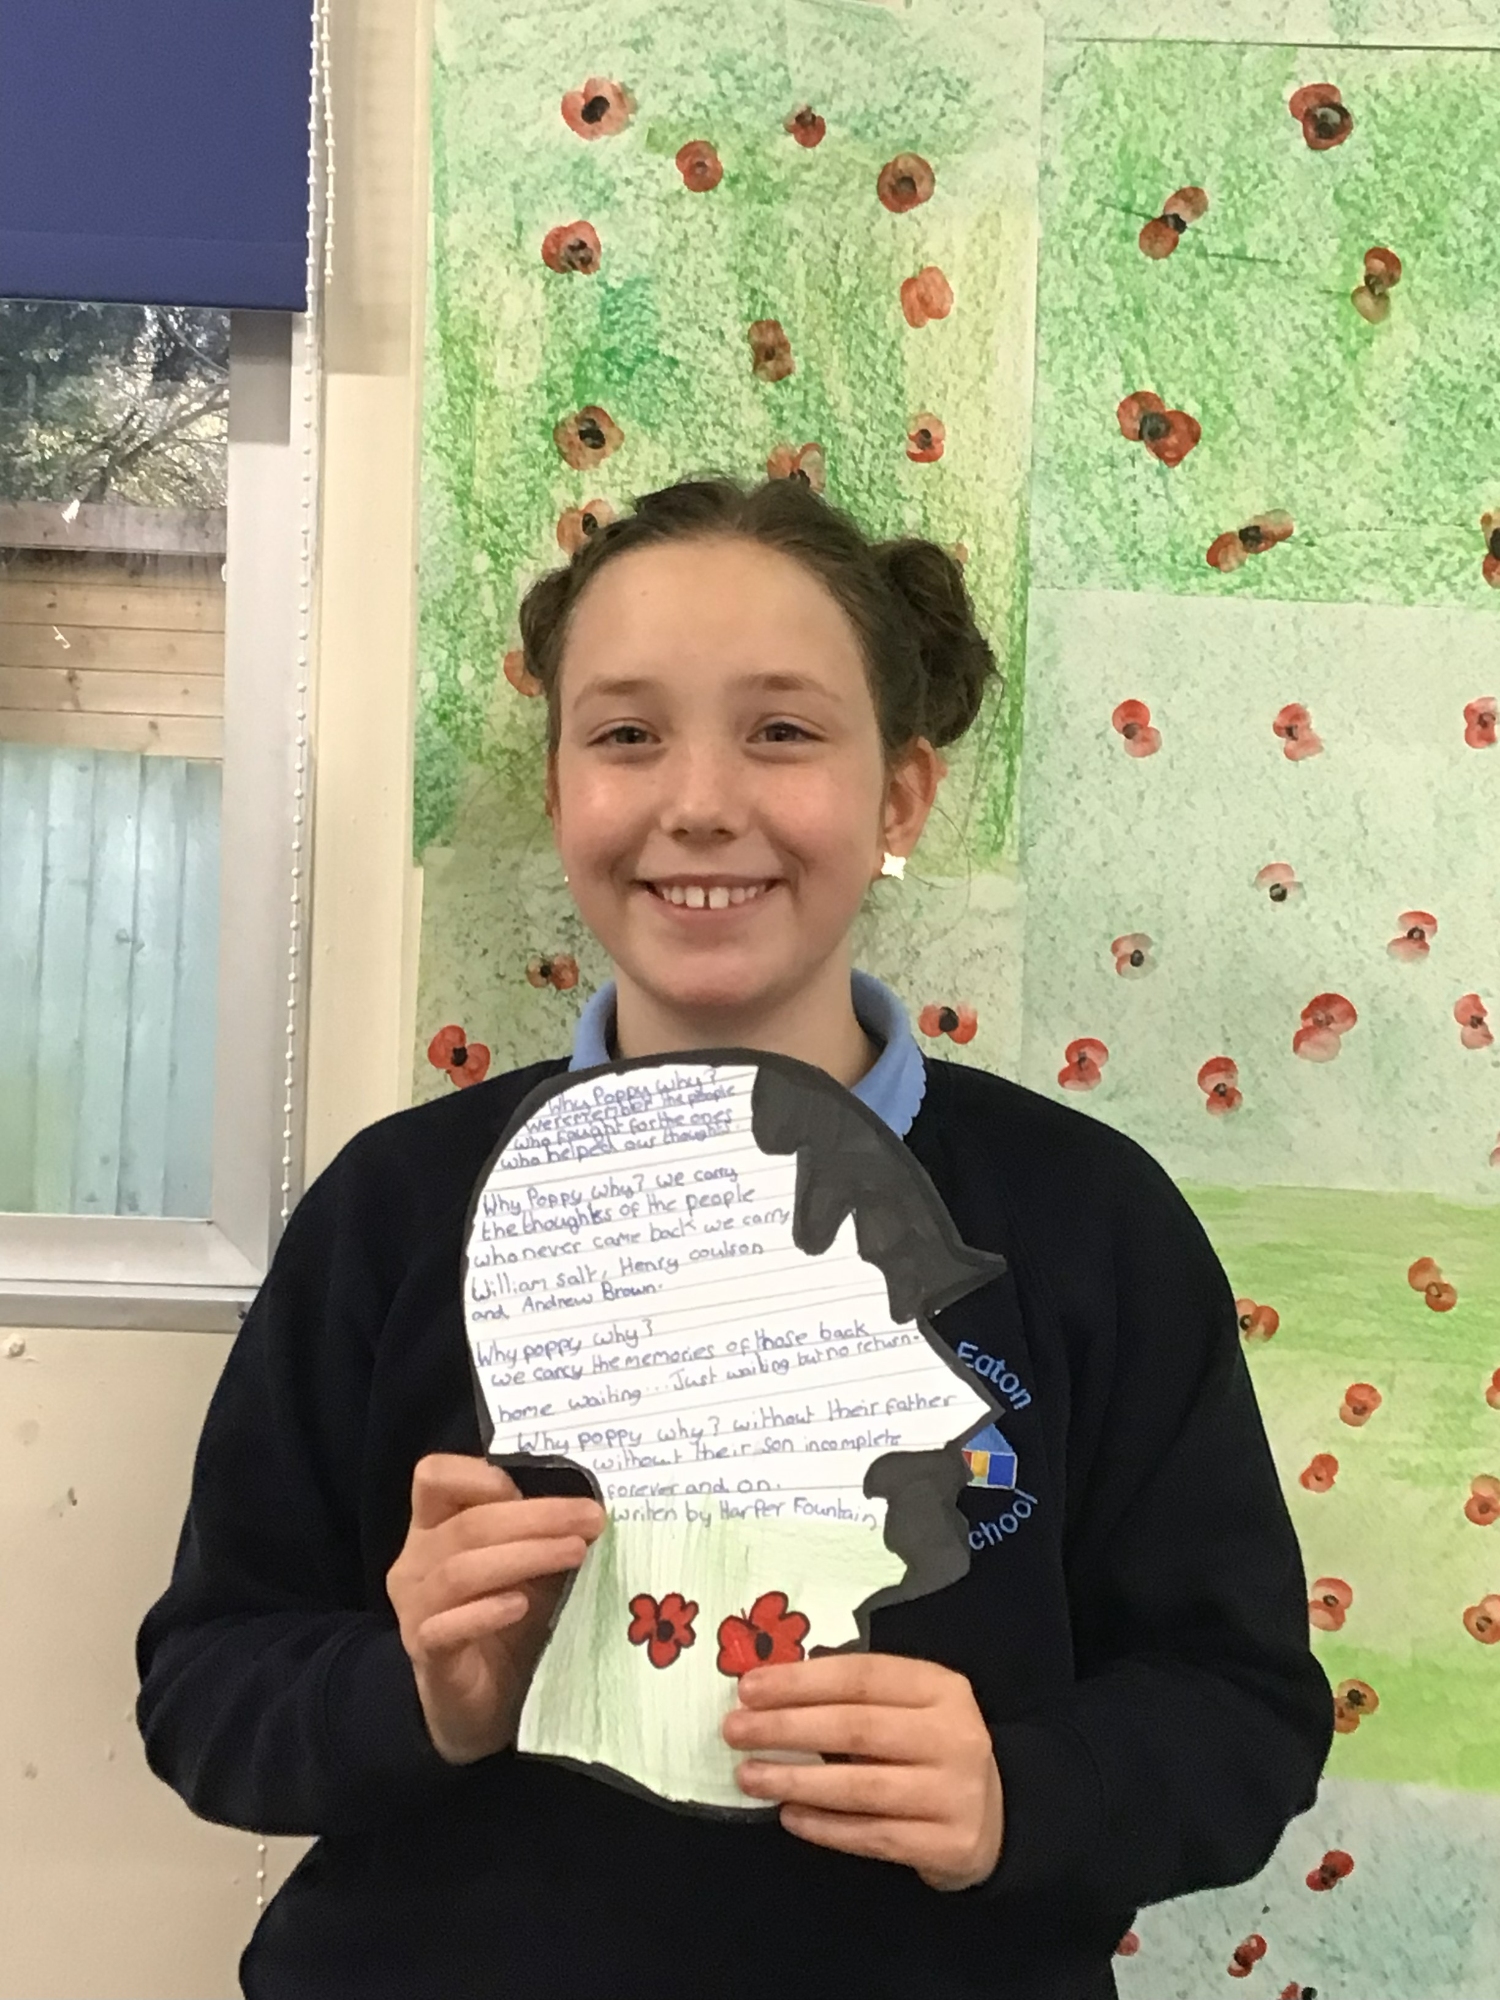 Why Poppy why?
we remember the people
who fought for the ones
who helped our thoughts.
Why Poppy why? we carry
the thoughts of the people
who never came back we carry
William Salt, Henry coulson
and Andrew Brown.
Why poppy why?
we carry the memories of those back
home waiting... Just waiting but no return.
Why poppy why? without their father
without their son incomplete
forever and on.
Writen by Harper Fountain
Eaton
chool